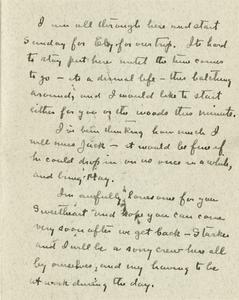 I am all through here and start
Sunday for Ely for our trip. Its hard
to stay put here until the time comes
to go - its a dismal life - this batching
around, and I would like to start
either for you or the woods this minute.
I've been thinking how much I
will miss Jack - it would be fine if
he could drop in on us once in a while,
and bring May.
I'm awfully lonesome for you
Sweetheart and hope you can come
very soon after we get back -
and I will be a sorry crew here all
by ourselves, and my having to be
at work during the day.